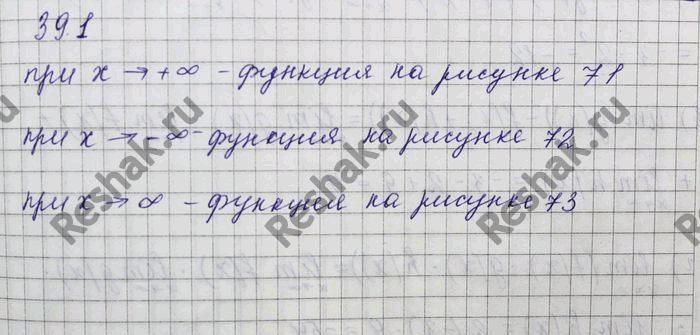 39.1
при x → +∞ - функция на рисунке 71
при x → -∞ - функция на рисунке 72
при x → ∞ - функция на рисунке 73
Reshak.ru
Reshak.ru
Reshak.ru